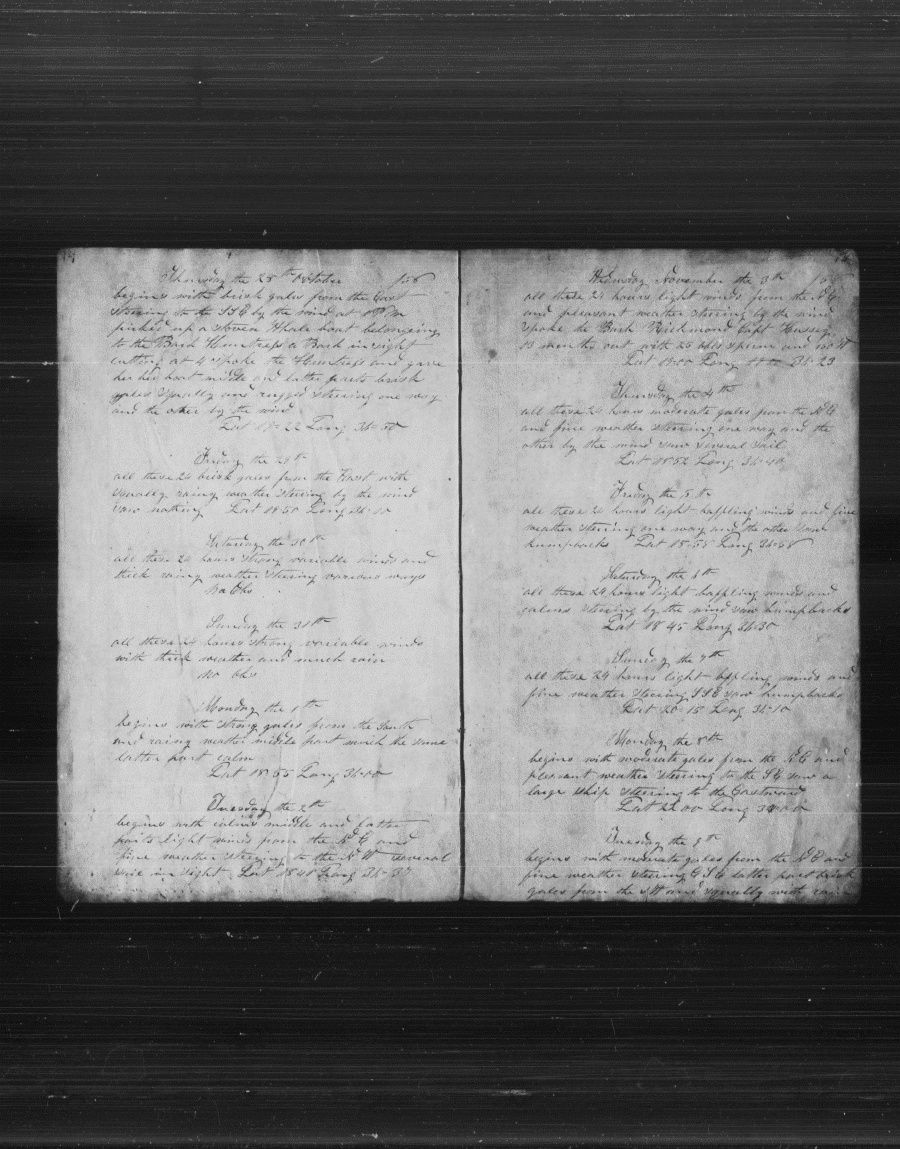 Thursday the 28th October 156
begins with brisk gales from the East
steering to the SSE by the wind at PM
picked up a stoven Whale boat belonging
to the Bark Huntress a Bark in sight
cutting at 4 spoke the Huntress and gave
her her boat middle and latter parts brisk
gales squally and rugged steering one way
and the other by the wind
Lat 18-22 Long 34-50
Friday the 29th
all these 24 brisk gales from the East with
squally rainy weather steering by the wind
saw nothing Lat 18-50 Long
Saturday the 30th
all these 24 hours strong variable winds and
thick rainy weather steering various ways
No Obs
Sunday the 31th
all these 24 hours strong variable winds
with thick weather and much rain
No Obs
Monday the 1th
begins with strong gales from the South
and rainy weather middle part much the same
latter part calm
Lat 18-55 Long
Tuesday the 2th
begins with calms middle and latter
parts light winds from the NE and
fine weather steering to the NW several
sail in sight Lat 18-48 Long 34-37
Wednesday November the 3th
all these 24 hours light winds from the NE
and pleasant weather steering by the wind
spoke the Bark Richmond Capt Hussey
13 months out with 25 bbls sperm and W
Lat Long 34-23
Thursday the 4th
all these 24 hours moderate gales from the NE
and fine weather steering one way and the
other by the wind saw several sail
Lat 18-52 Long 34-40
Friday the 5th
all these 24 hours light baffling winds and fine
weather steering one way and the other saw
humpbacks Lat 18-55 Long 34-58
Saturday the 6th
all these 24 hours light baffling winds and
calms steering by the wind saw humpbacks
Lat 18 45 Long 34-30
Sunday the 7th
all these 24 hours light baffling winds and
fine weather steering SSE saw humpbacks
Lat 20-18 Long 34-10
Monday the 8th
begins with moderate gales from the NE and
pleasant weather steering to the SE saw a
large ship steering to the Eastward
Lat 22 00 Long
Tuesday the 9th
begins with moderate gales from the NE and
fine weather steering ESE latter part brisk
gales from the SW and squally with rain